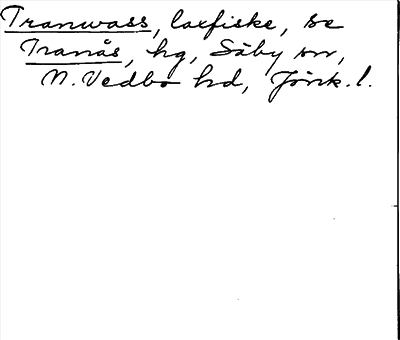 Tranwass, laxfiske, se
Tranås, hg, Säby sn,
N. Vedbo hd, Jönk. l.